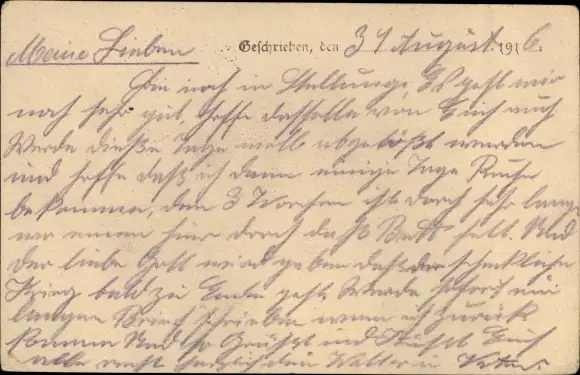 Meine Lieben Geschrieben, den 31 August. 1916.
Bin noch in Stellung, Es geht mir
noch sehr gut, hoffe dasselbe von Euch auch
Werde dieße Tage wohl abgelößt werden
und hoffe daß ich dann einige Tage Ruhe
bekomme, den 3 Wochen ist doch sehr lange
wo einem hier doch daß Bett fehlt. Und
der liebe Gott wird geben daß der schreckliche
Krieg bald zu Ende geht Werde sofort ein
langen Brief schreiben wenn ich zurück
komme Und so Grüßt und Küßt Euch
alle recht herzlich dein Walter